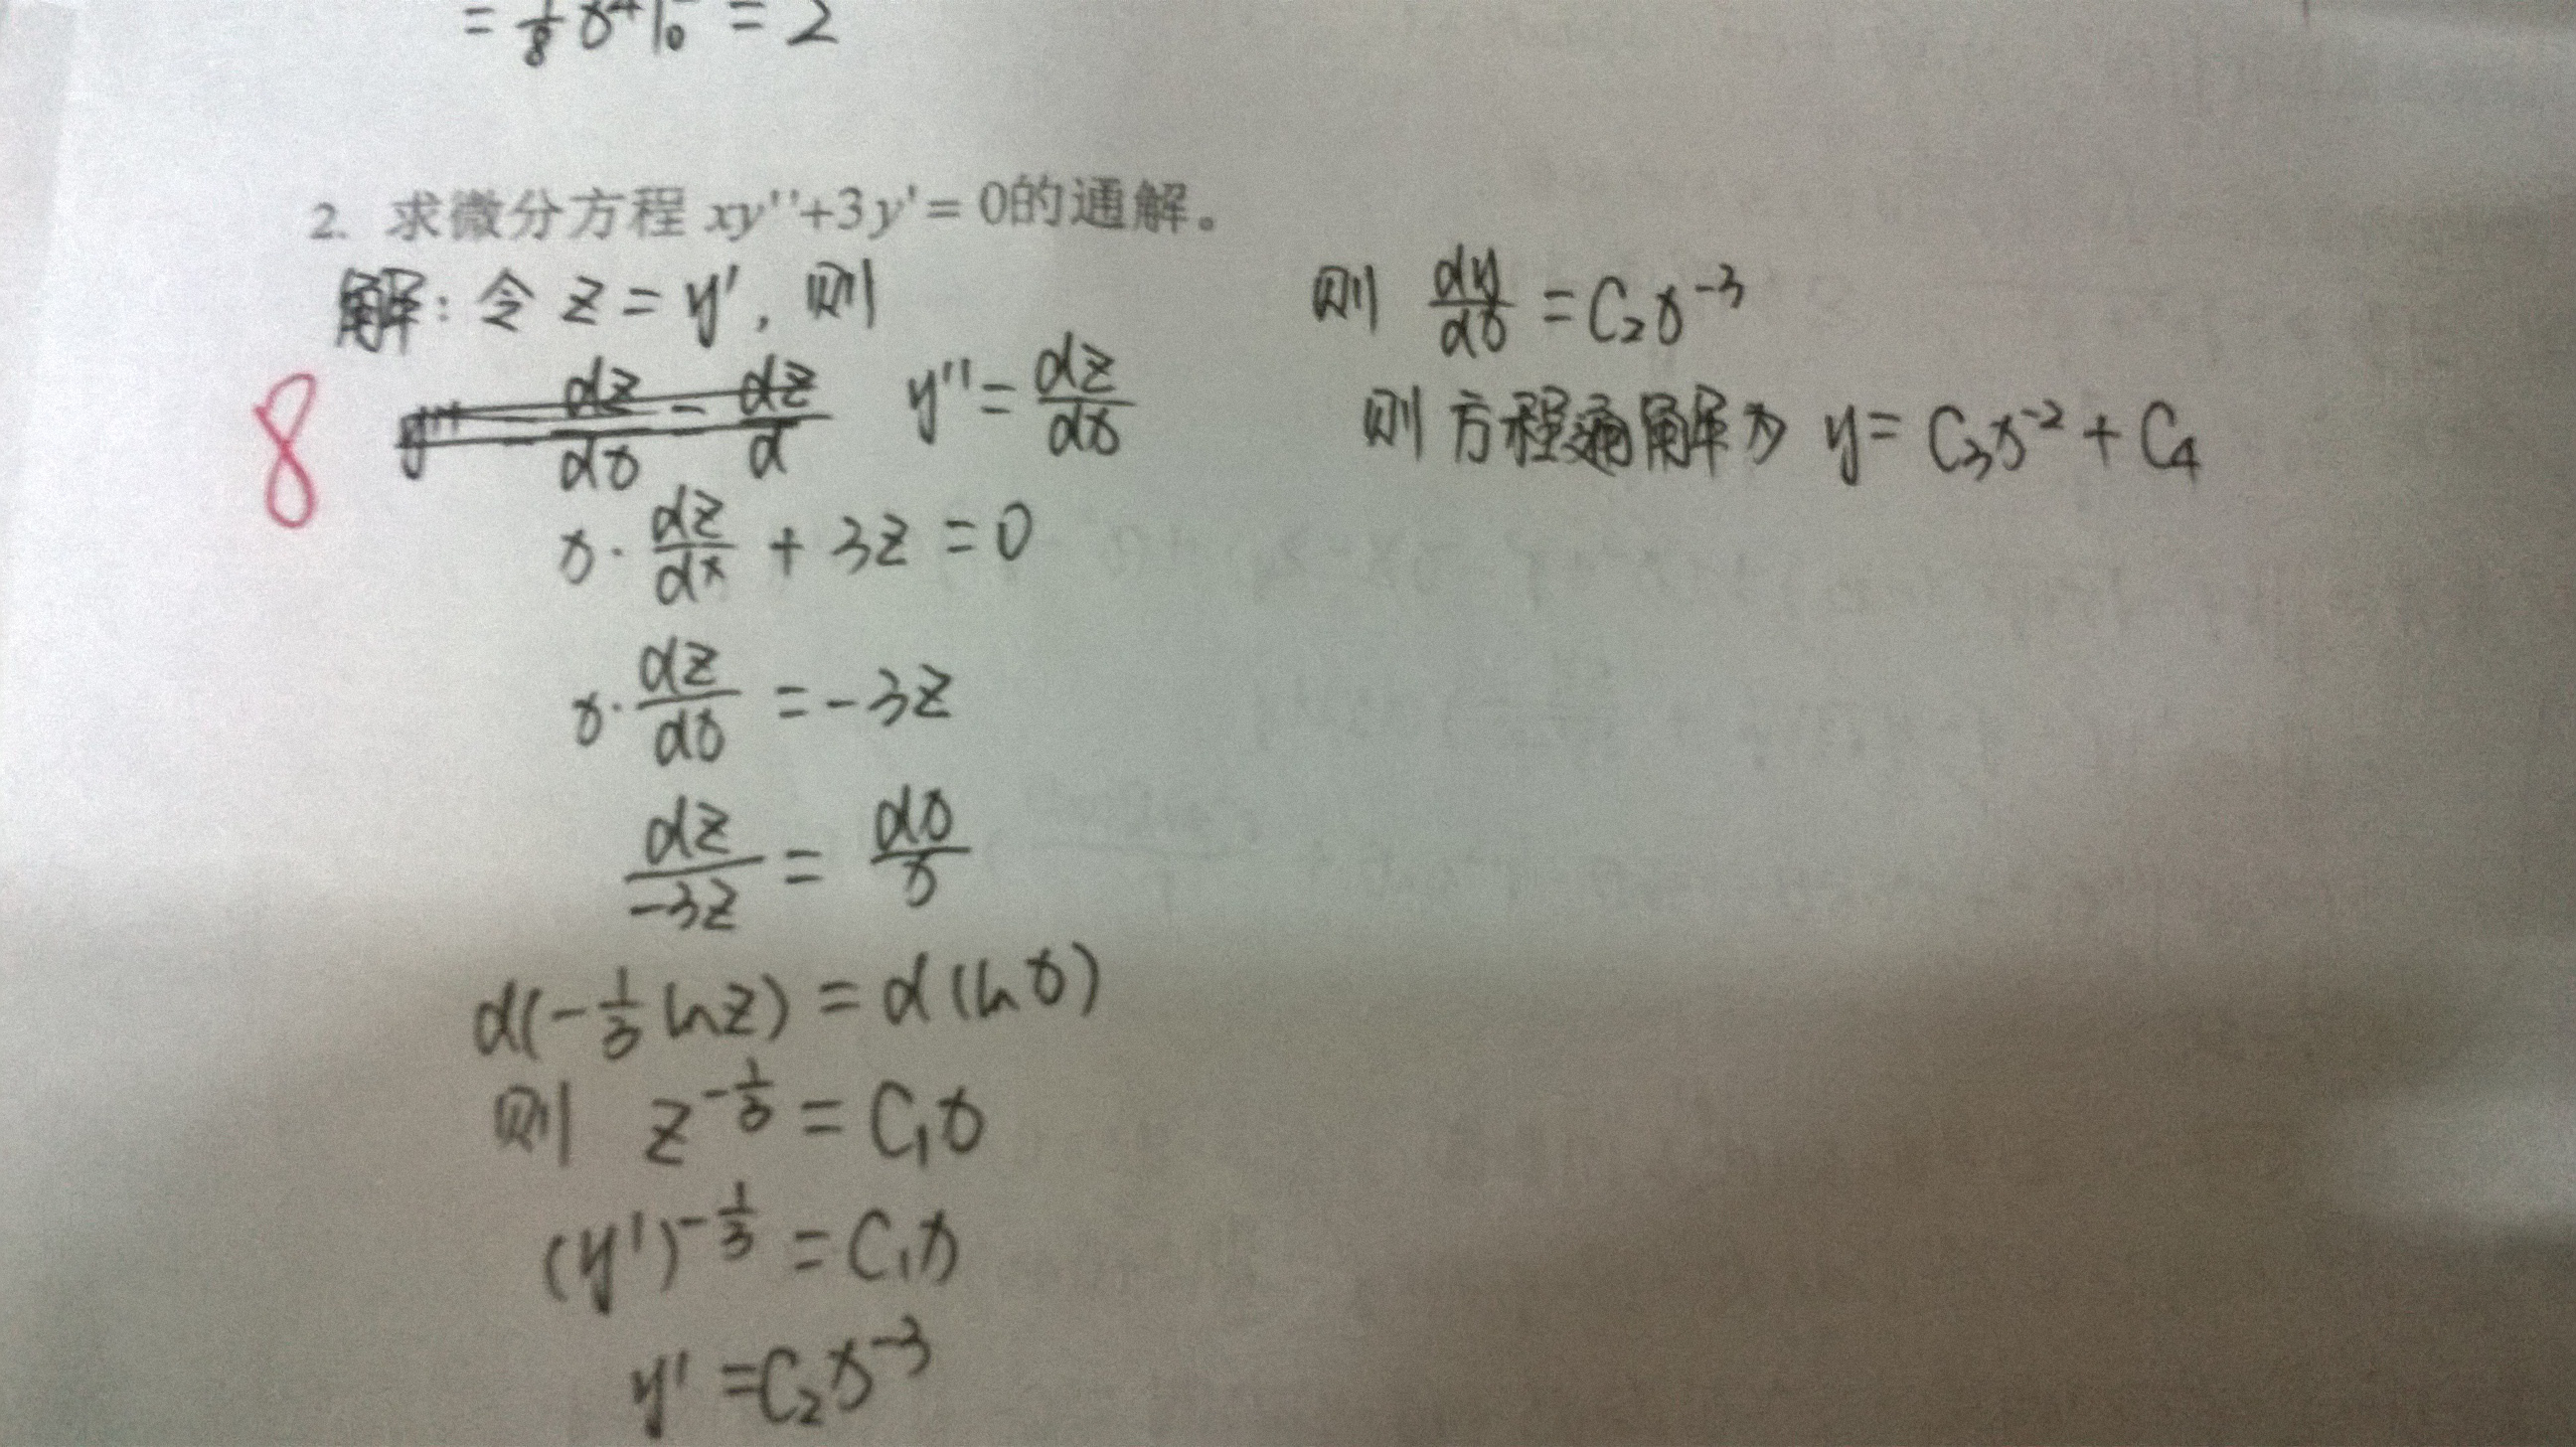 = 1/8 x⁴|₀ = 2
2. 求微分方程 xy''+3y'= 0的通解。
解: 令 z = y', 则
8
y'' = dz/dx
x· dz/dx + 3z = 0
x· dz/dx = -3z
dz/-3z = dx/x
d(-1/3 lnz) = d(lnx)
则 z^(-1/3) = C₁x
(y')^(-1/3) = C₁x
y' = C₂x⁻³
则 dy/dx = C₂x⁻³
则方程通解为 y = C₃x⁻² + C₄